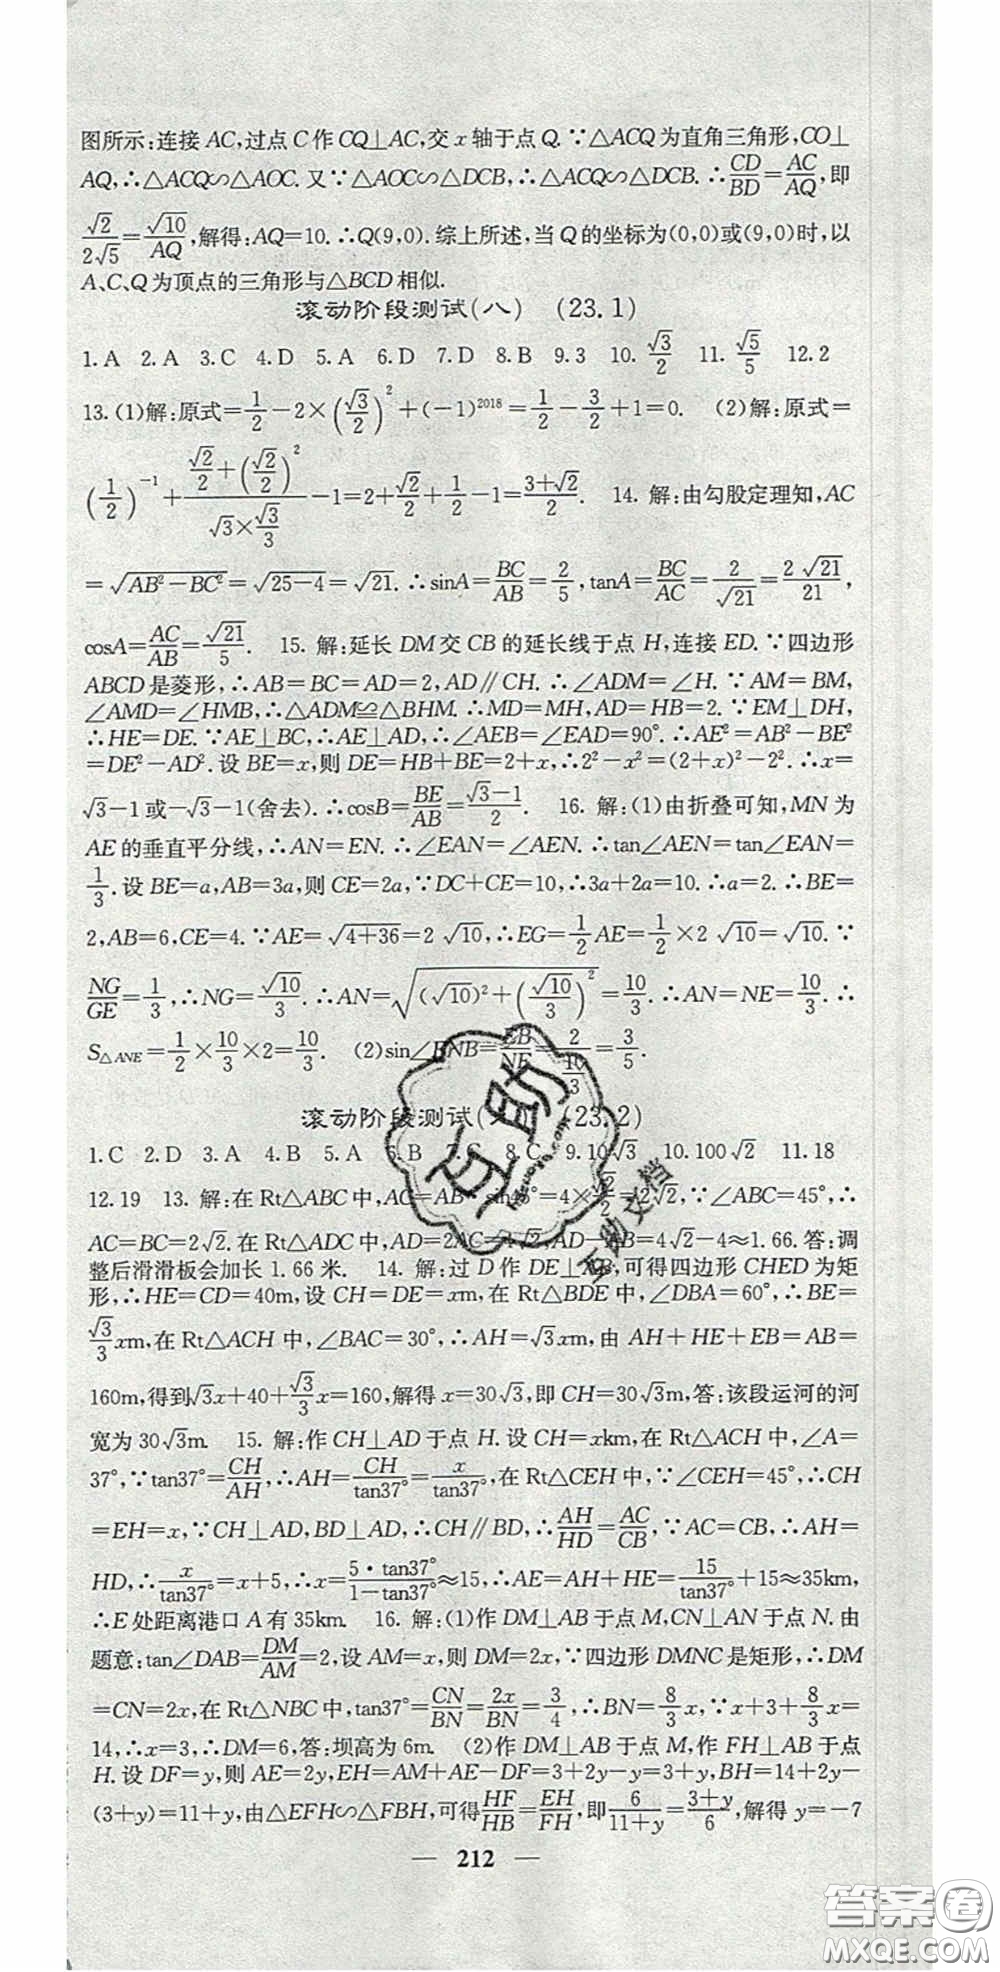 图所示:连接 AC,过点 C 作 CQ⊥AC,交 x 轴于点 Q. ∵△ACQ 为直角三角形,CO⊥
AQ,∴△ACQ∽△AOC. 又∵△AOC∽△DCB,∴△ACQ∽△DCB. ∴CD/BD=AC/AQ,即
√2/2√5=√10/AQ,解得:AQ=10. ∴Q(9,0). 综上所述,当 Q 的坐标为(0,0)或(9,0)时,以
A、C、Q 为顶点的三角形与△BCD 相似.
滚动阶段测试(八) (23.1)
1. A 2. A 3. C 4. D 5. A 6. D 7. D 8. B 9. 3 10. √3/2 11. √5/5 12. 2
13. (1)解:原式=1/2-2×(√3/2)²+(-1)²⁰¹⁸=1/2-3/2+1=0. (2)解:原式=
(1/2)⁻¹+(√2/2+(√2/2)²)/(√3×√3/3)-1=2+√2/2+1/2-1=(3+√2)/2. 14. 解:由勾股定理知,AC
=√(AB²-BC²)=√(25-4)=√21. ∴sinA=BC/AB=2/5,tanA=BC/AC=2/√21=2√21/21,
cosA=AC/AB=√21/5. 15. 解:延长 DM 交 CB 的延长线于点 H,连接 ED. ∵四边形
ABCD 是菱形,∴AB=BC=AD=2,AD∥CH. ∴∠ADM=∠H. ∵AM=BM,
∠AMD=∠HMB,∴△ADM≌△BHM. ∴MD=MH,AD=HB=2. ∵EM⊥DH,
∴HE=DE. ∵AE⊥BC,∴AE⊥AD,∴∠AEB=∠EAD=90°. ∴AE²=AB²-BE²
=DE²-AD². 设 BE=x,则 DE=HB+BE=2+x,∴2²-x²=(2+x)²-2². ∴x=
√3-1或-√3-1(舍去). ∴cosB=BE/AB=(√3-1)/2. 16. 解:(1)由折叠可知,MN 为
AE 的垂直平分线,∴AN=EN. ∴∠EAN=∠AEN. ∴tan∠AEN=tan∠EAN=
1/3. 设 BE=a,AB=3a,则 CE=2a,∵DC+CE=10,∴3a+2a=10. ∴a=2. ∴BE=
2,AB=6,CE=4. ∵AE=√(4+36)=2√10,∴EG=1/2AE=1/2×2√10=√10. ∵
NG/GE=1/3,∴NG=√10/3. ∴AN=√((√10)²+(√10/3)²)=10/3. ∴AN=NE=10/3. ∴
S△ANE=1/2×10/3×2=10/3. (2)sin∠ENB=EB/NE=2/(10/3)=3/5.
滚动阶段测试( (23.2)
1. C 2. D 3. A 4. B 5. A 6. B 7. C 8. C 9. 10√3 10. 100√2 11. 18
12. 19 13. 解:在 Rt△ABC 中,AC=AB·sin45°=4×√2/2=2√2,∵∠ABC=45°,∴
AC=BC=2√2. 在 Rt△ADC 中,AD=2AC=4√2,AD-AB=4√2-4≈1.66. 答:调
整后滑滑板会加长 1.66 米. 14. 解:过 D 作 DE⊥AB,可得四边形 CHED 为矩
形,∴HE=CD=40m,设 CH=DE=xm,在 Rt△BDE 中,∠DBA=60°,∴BE=
√3/3xm,在 Rt△ACH 中,∠BAC=30°,∴AH=√3xm,由 AH+HE+EB=AB=
160m,得到√3x+40+√3/3x=160,解得 x=30√3,即 CH=30√3m,答:该段运河的河
宽为 30√3m. 15. 解:作 CH⊥AD 于点 H. 设 CH=xkm,在 Rt△ACH 中,∠A=
37°,∵tan37°=CH/AH,∴AH=CH/tan37°=x/tan37°,在 Rt△CEH 中,∵∠CEH=45°,∴CH
=EH=x,∵CH⊥AD,BD⊥AD,∴CH∥BD,∴AH/HD=AC/CB,∵AC=CB,∴AH=
HD,∴x/tan37°=x+5,∴x=5·tan37°/(1-tan37°)≈15,∴AE=AH+HE=15/tan37°+15≈35km,
∴E 处距离港口 A 有 35km. 16. 解:(1)作 DM⊥AB 于点 M,CN⊥AN 于点 N. 由
题意:tan∠DAB=DM/AM=2,设 AM=x,则 DM=2x,∵四边形 DMNC 是矩形,∴DM
=CN=2x,在 Rt△NBC 中,tan37°=CN/BN=2x/BN=3/4,∴BN=8/3x,∵x+3+8/3x=
14,∴x=3,∴DM=6,答:坝高为 6m. (2)作 DM⊥AB 于点 M,作 FH⊥AB 于点
H. 设 DF=y,则 AE=2y,EH=AM+AE-DF=3+2y-y=3+y,BH=14+2y-
(3+y)=11+y,由△EFH∽△FBH,可得HF/HB=EH/FH,即6/(11+y)=(3+y)/6,解得 y=-7
— 212 —
互助
互助文档
答案圈
MXQE.COM